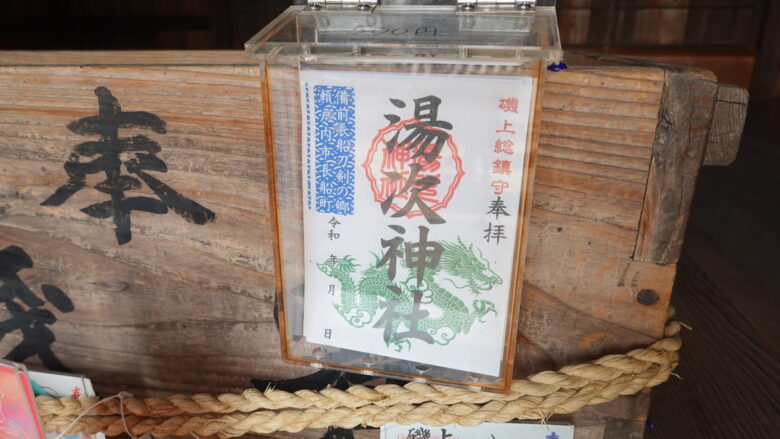 00円
磯上総鎮守
奉拝
湯次神社
備前長船刀剣の郷
瀬戸内市長船町
令和 年 月 日
奉
磯上